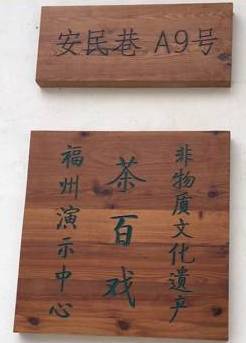 安民巷 A9号
非物质文化遗产
茶百戏
福州演示中心